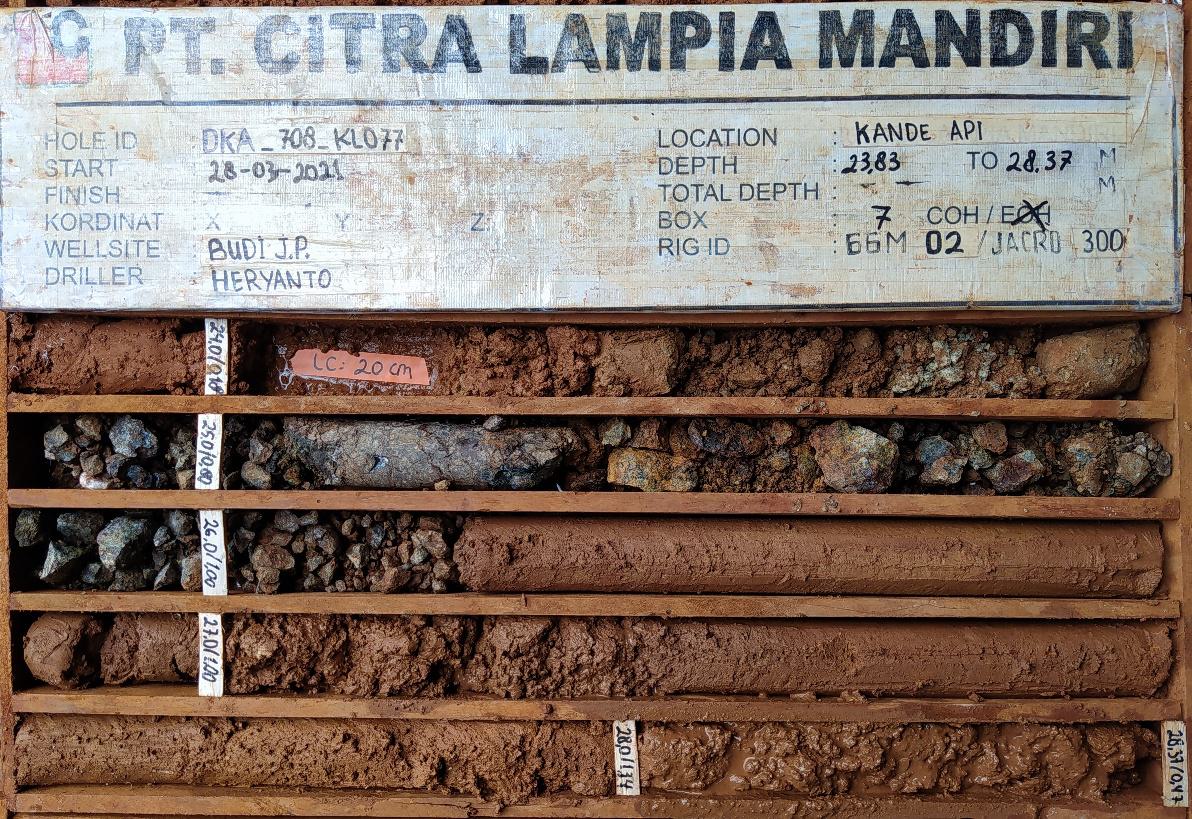 PT. CITRA LAMPIA MANDIRI
HOLE ID : DKA_708_KL077
START : 28-03-2021
FINISH : —
KORDINAT X Y Z
WELLSITE : BUDI J.P.
DRILLER : HERYANTO
LOCATION : KANDE API
DEPTH : 23,83 TO 28.37 M
TOTAL DEPTH : — M
BOX : 7 COH / EOH
RIG ID : GGM 02 / JACRO 300
LC: 20 cm
25.0/0.80
26.0/1.00
27.0/1.00